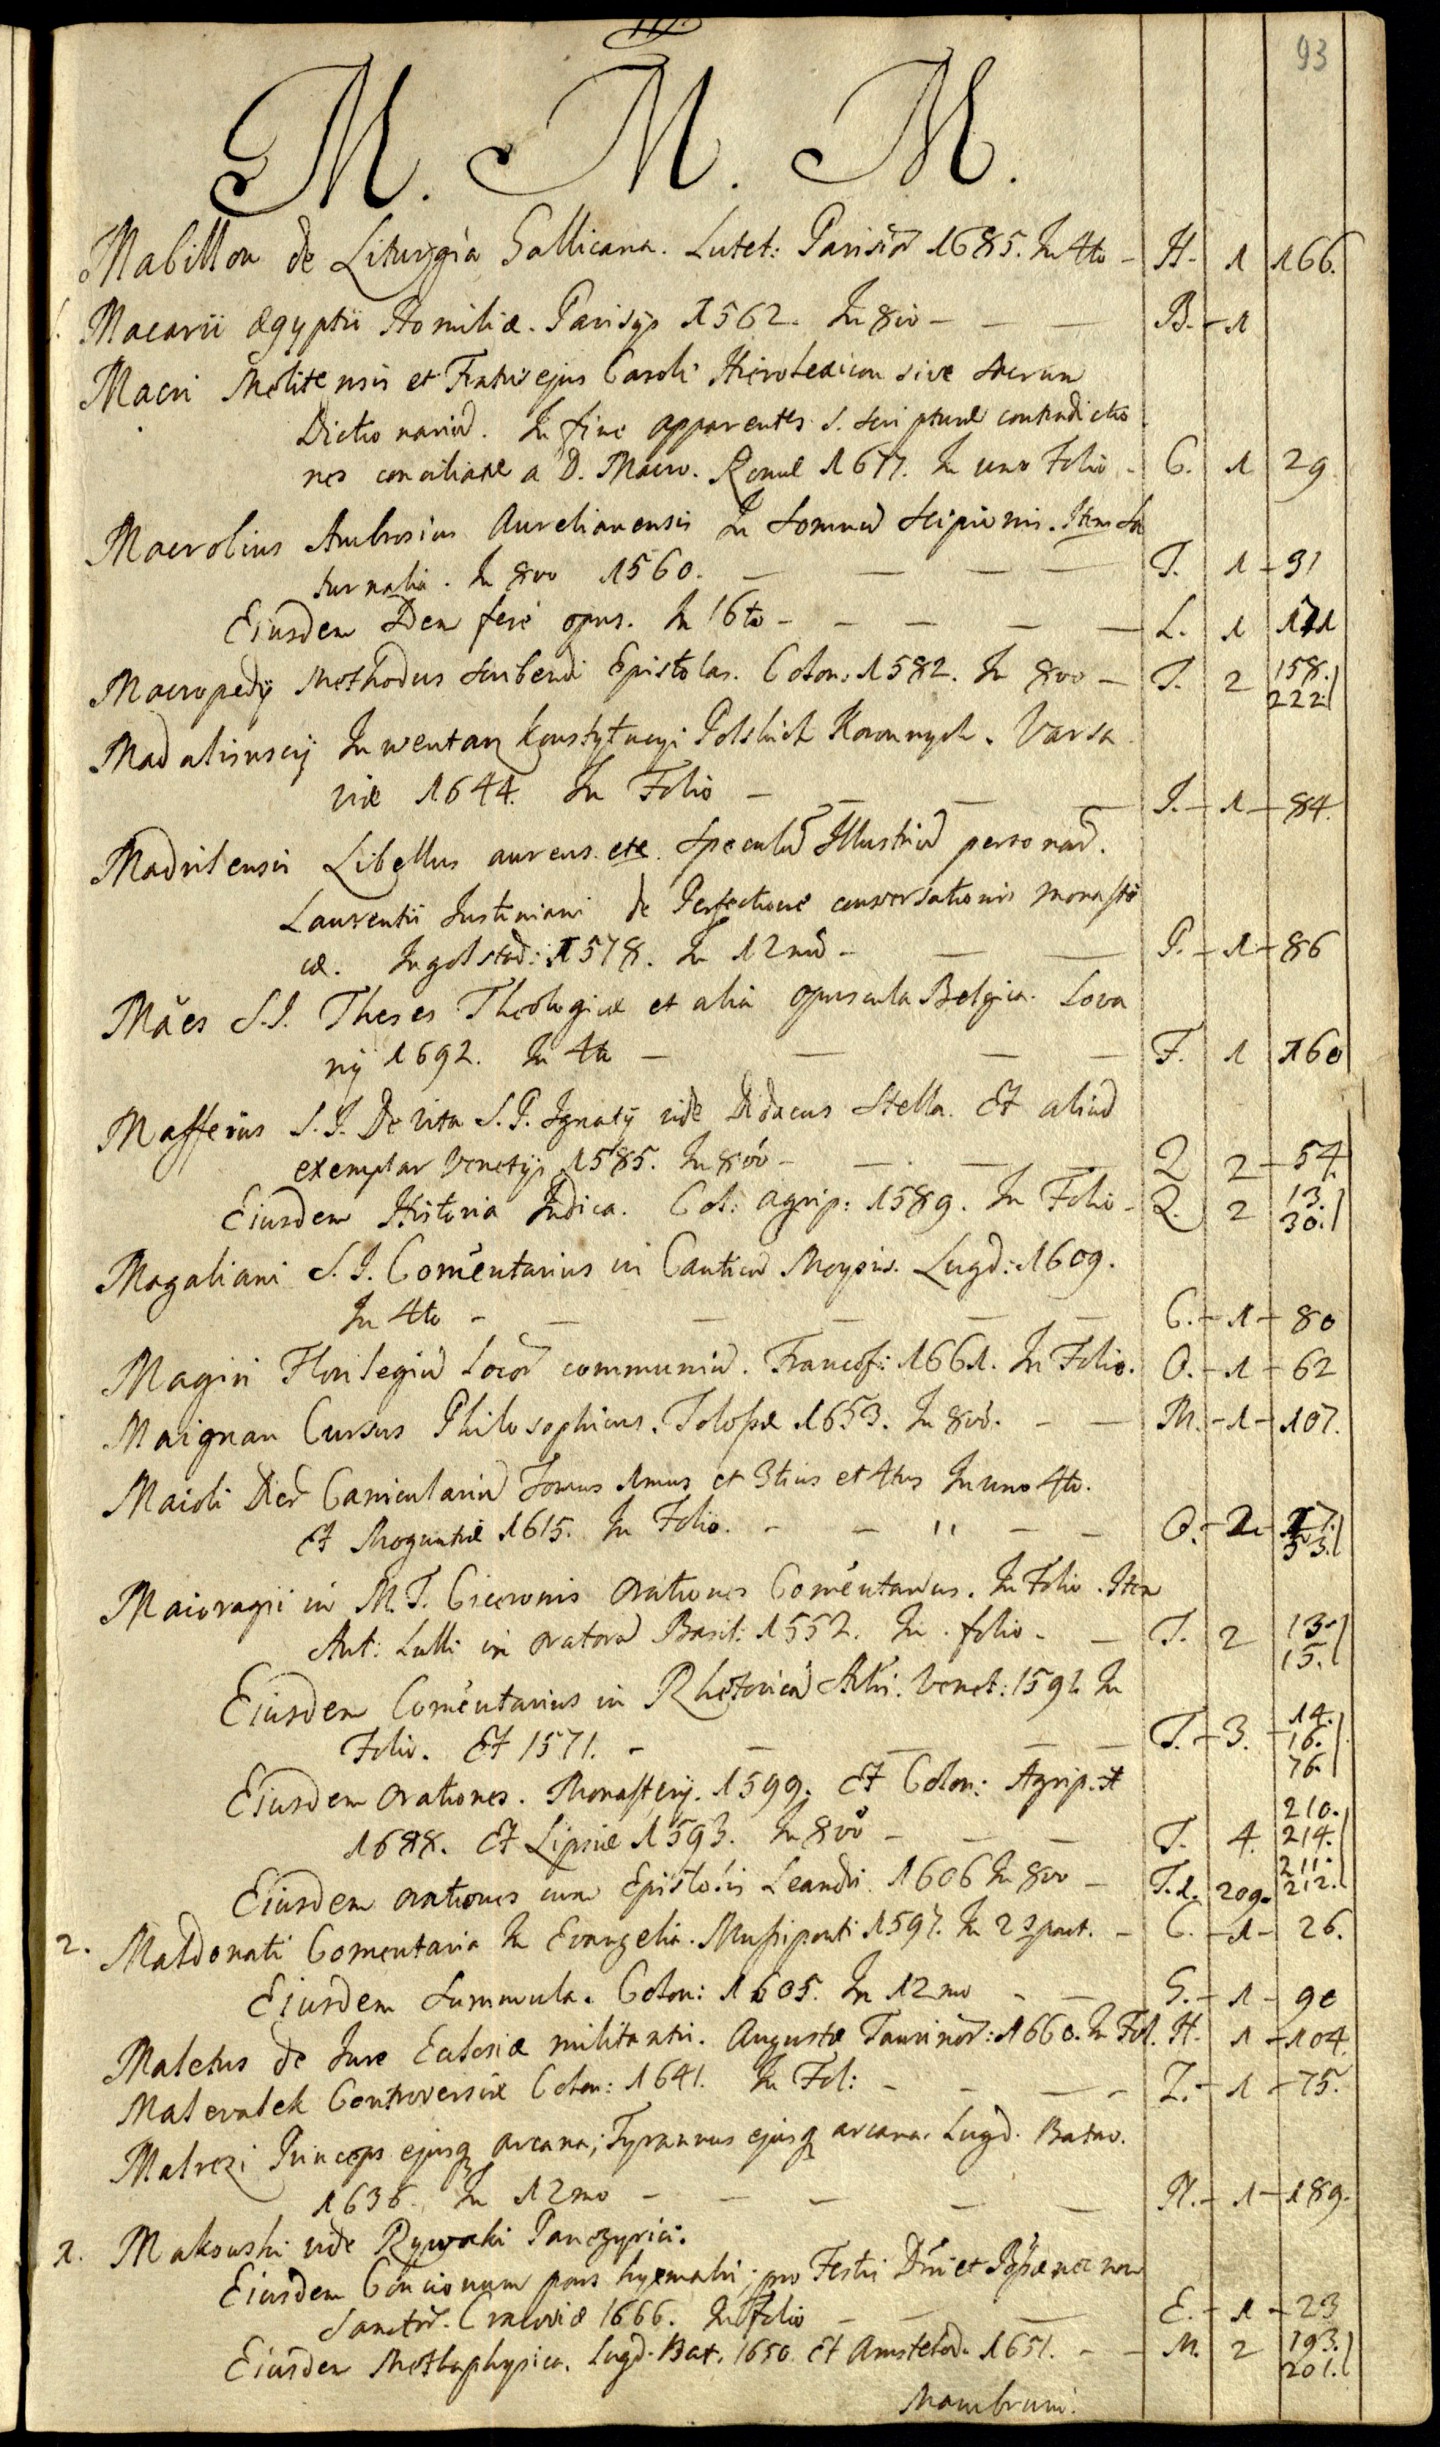 93
M. M. M.
Mabillon de Liturgia Gallicana. Lutet: Parisior 1685. In 4to - H- 1 166.
Macarii Ægyptii Homiliæ. Parisijs 1562. In 8vo - - - B. - 1
Macri Melitensis et Fratris ejus Caroli Hierolexicon sive Sacrum
Dictionariū. In fine apparentes S. Scripturæ contradictio
nes conciliatæ a D. Macro. Romæ 1677. In uno Folio - C. 1 29
Macrobius Ambrosius Aurelianensis In Somniū Scipionis. Item Sa
turnalia. In 8vo 1560. - - - - T. 1 - 91
Eiusdem Idem fere opus. In 16to - - - - - L. 1 171
Macropedij Methodus scribendi Epistolas. Colon: 1582. In 8vo - T. 2 158.
222.
Madalinscij Inwentarz Konstytucyi Polskich Koronnych. Varsa
viæ 1644. In Folio - - - - I. - 1 - 84.
Madritensis Libellus aureus etc. Speculū Illustriū personarū.
Laurentii Justiniani de Perfectione conversationis monasti
cæ. Ingolstad: 1578. In 12mō - - - P. - 1 - 86
Mäes S.I. Theses Theologicæ et alia opuscula Belgica. Lova
nij 1692. In 4to - - - - F. 1 160
Maffeius S.I. De vita S.P. Ignatij vide Didacus Stella. Et aliud
exemplar Venetijs 1585. In 8vo - - - - Q 2 - 54.
Eiusdem Historia Indica. Col: Agrip: 1589. In Folio - Q. 2 13.
30.
Magaliani S.I. Comentarius in Canticū Moysis. Lugd: 1609.
In 4to - - - - - - C. - 1 - 80
Magiri Florilegiū locor communiū. Francof: 1661. In Folio. O. - 1 - 62
Maignan Cursus Philosophicus. Tolosæ 1653. In 8vō. - - M. - 1 - 107.
Maioli Dier Caniculariū Tomus 1mus et 3tius et 4tus In uno 4to.
Et Moguntiæ 1615. In Folio. - - " - - O. - 2. - 17.
53.
Maioragii in M.T. Ciceronis Orationes Comentarius. In Folio. Item
Ant: Lulli in oratorē Basil: 1552. In folio - - T. 2 13.
15.
Eiusdem Comentarius in Rhetoricā Artri. Venet: 1591 In
Folio. Et 1571. - - - - - T. - 3. - 14.
16.
76.
Eiusdem Orationes. Monasterij. 1599. Et Colon: Agrip: et
1688. Et Lipsiæ 1593. In 8vō - - - T. 4. 210.
214.
211.
212.
Eiusdem orationes cum Epistolis Leandri. 1606 In 8vo - T. 1. 209.
2. Maldonati Comentaria In Evangelia. Mussiponti 1597. In 2 part. - C. - 1 - 26.
Eiusdem Summula. Colon: 1605. In 12mo - - G. - 1 - 90
Maletus de Jure Eclesiæ militantis. Augustæ Taurinor: 1660. In Fol. H. 1 - 104.
Malevatek Controversiæ Colon: 1641. In Fol: - - - - Z. - 1 - 75.
Malvezi Princeps ejusq arcana; Tyrannus ejusq arcana. Lugd. Batav.
1636. In 12mo - - - - - N. - 1 - 189.
1. Makowski vide Rywocki Panegyrici.
Eiusdem Concionum pars hyemalis; pro Festis Dni et Dipæ nec non
Sanctor. Cracoviæ 1666. In folio - - - E. - 1 - 23
Eiusdem Methaphysica. Lugd. Bat. 1650. Et Amstelod. 1651. - - M. 2 193.
201.
Mambruni.